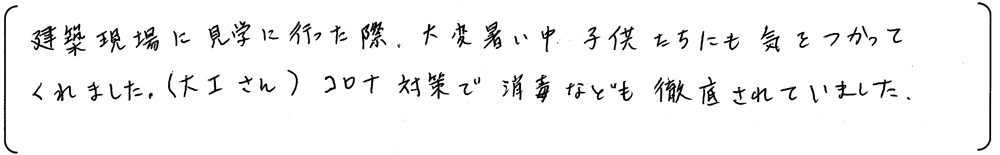 建築現場に見学に行った際、大変暑い中子供たちにも気をつかって
くれました。(大工さん)コロナ対策で消毒なども徹底されていました。